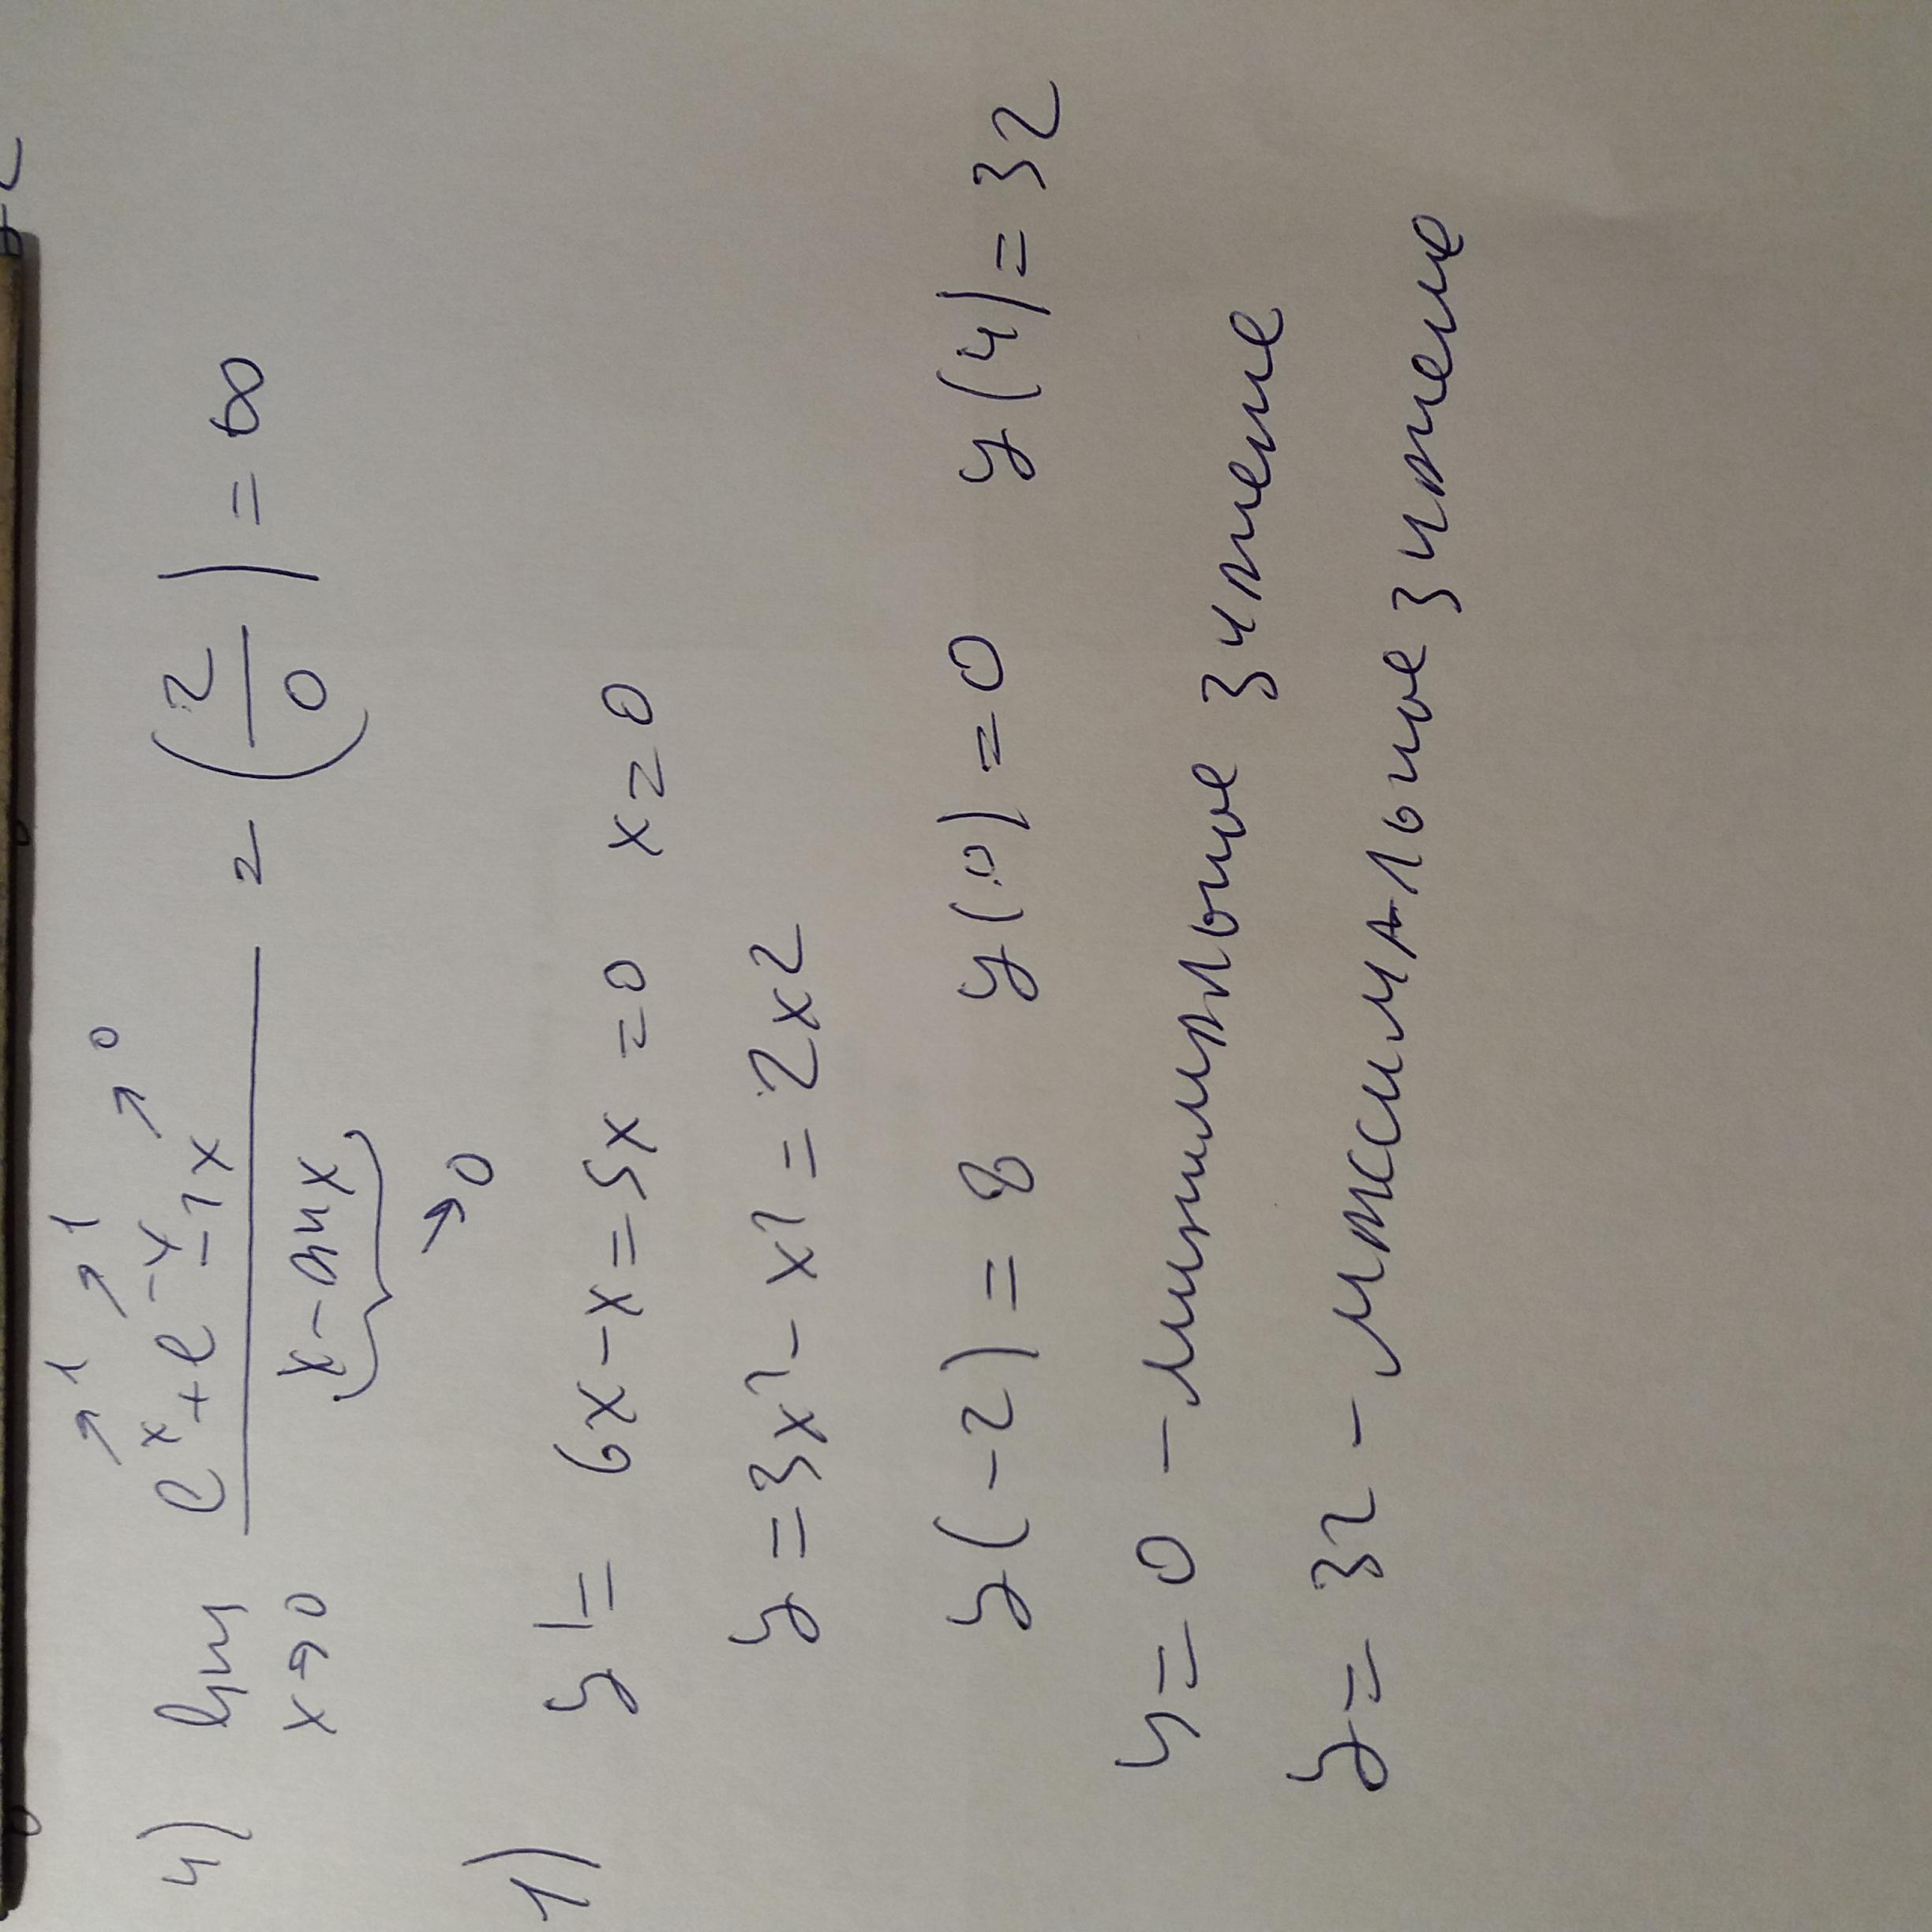 4) lim e^x + e^-x - 2x = (2/0) = ∞
x→0 x - sin x
→1 →1 →0
→0
1) y' = 6x - x = 5x = 0 x = 0
y = 3x² - x² = 2x2
y(-2) = 8 y(0) = 0 y(4) = 32
y = 0 - минимальное значение
y = 32 - максимальное значение